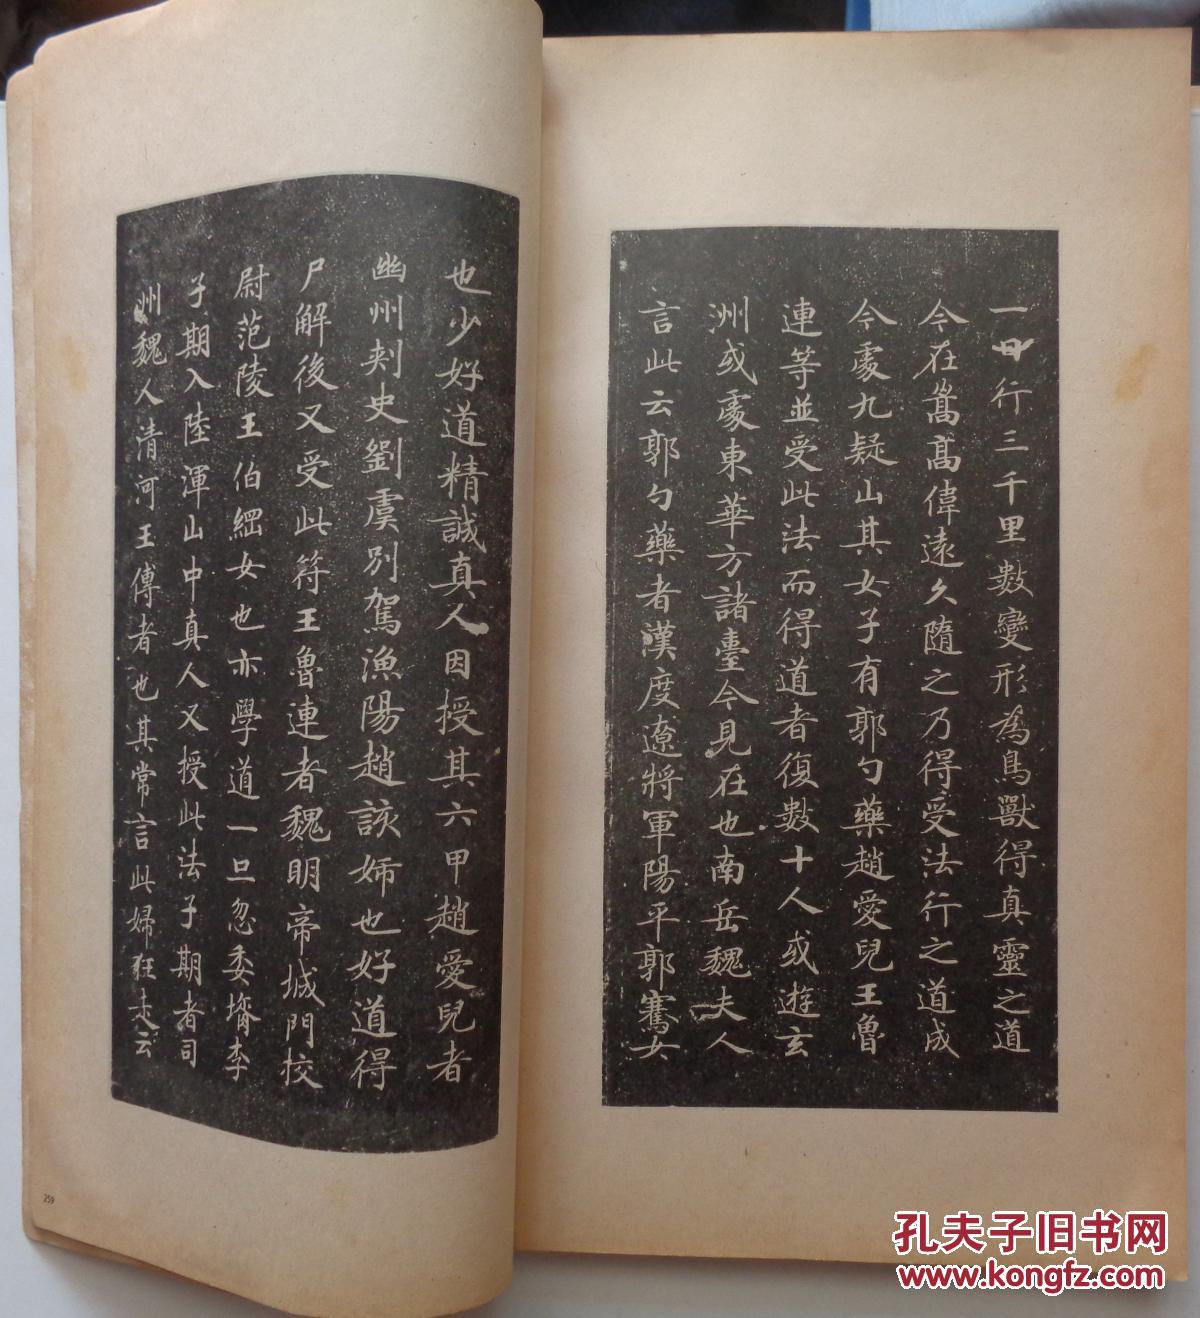 一日行三千里數變形為鳥獸得真靈之道
今在嵩高偉遠久隨之乃得受法行之道成
今處九疑山其女子有郭勺藥趙愛兒王魯
連等並受此法而得道者復數十人或遊玄
洲或處東華方諸臺今見在也南岳魏夫人
言此云郭勺藥者漢度遼將軍陽平郭騫女
也少好道精誠真人因授其六甲趙愛兒者
幽州刾史劉虞別駕漁陽趙該姉也好道得
尸解後又受此符王魯連者魏明帝城門校
尉范陵王伯綱女也亦學道一旦忽委壻李
子期入陸渾山中真人又授此法子期者司
州魏人清河王傅者也其常言此婦狂走云
259
孔夫子旧书网
www.kongfz.com